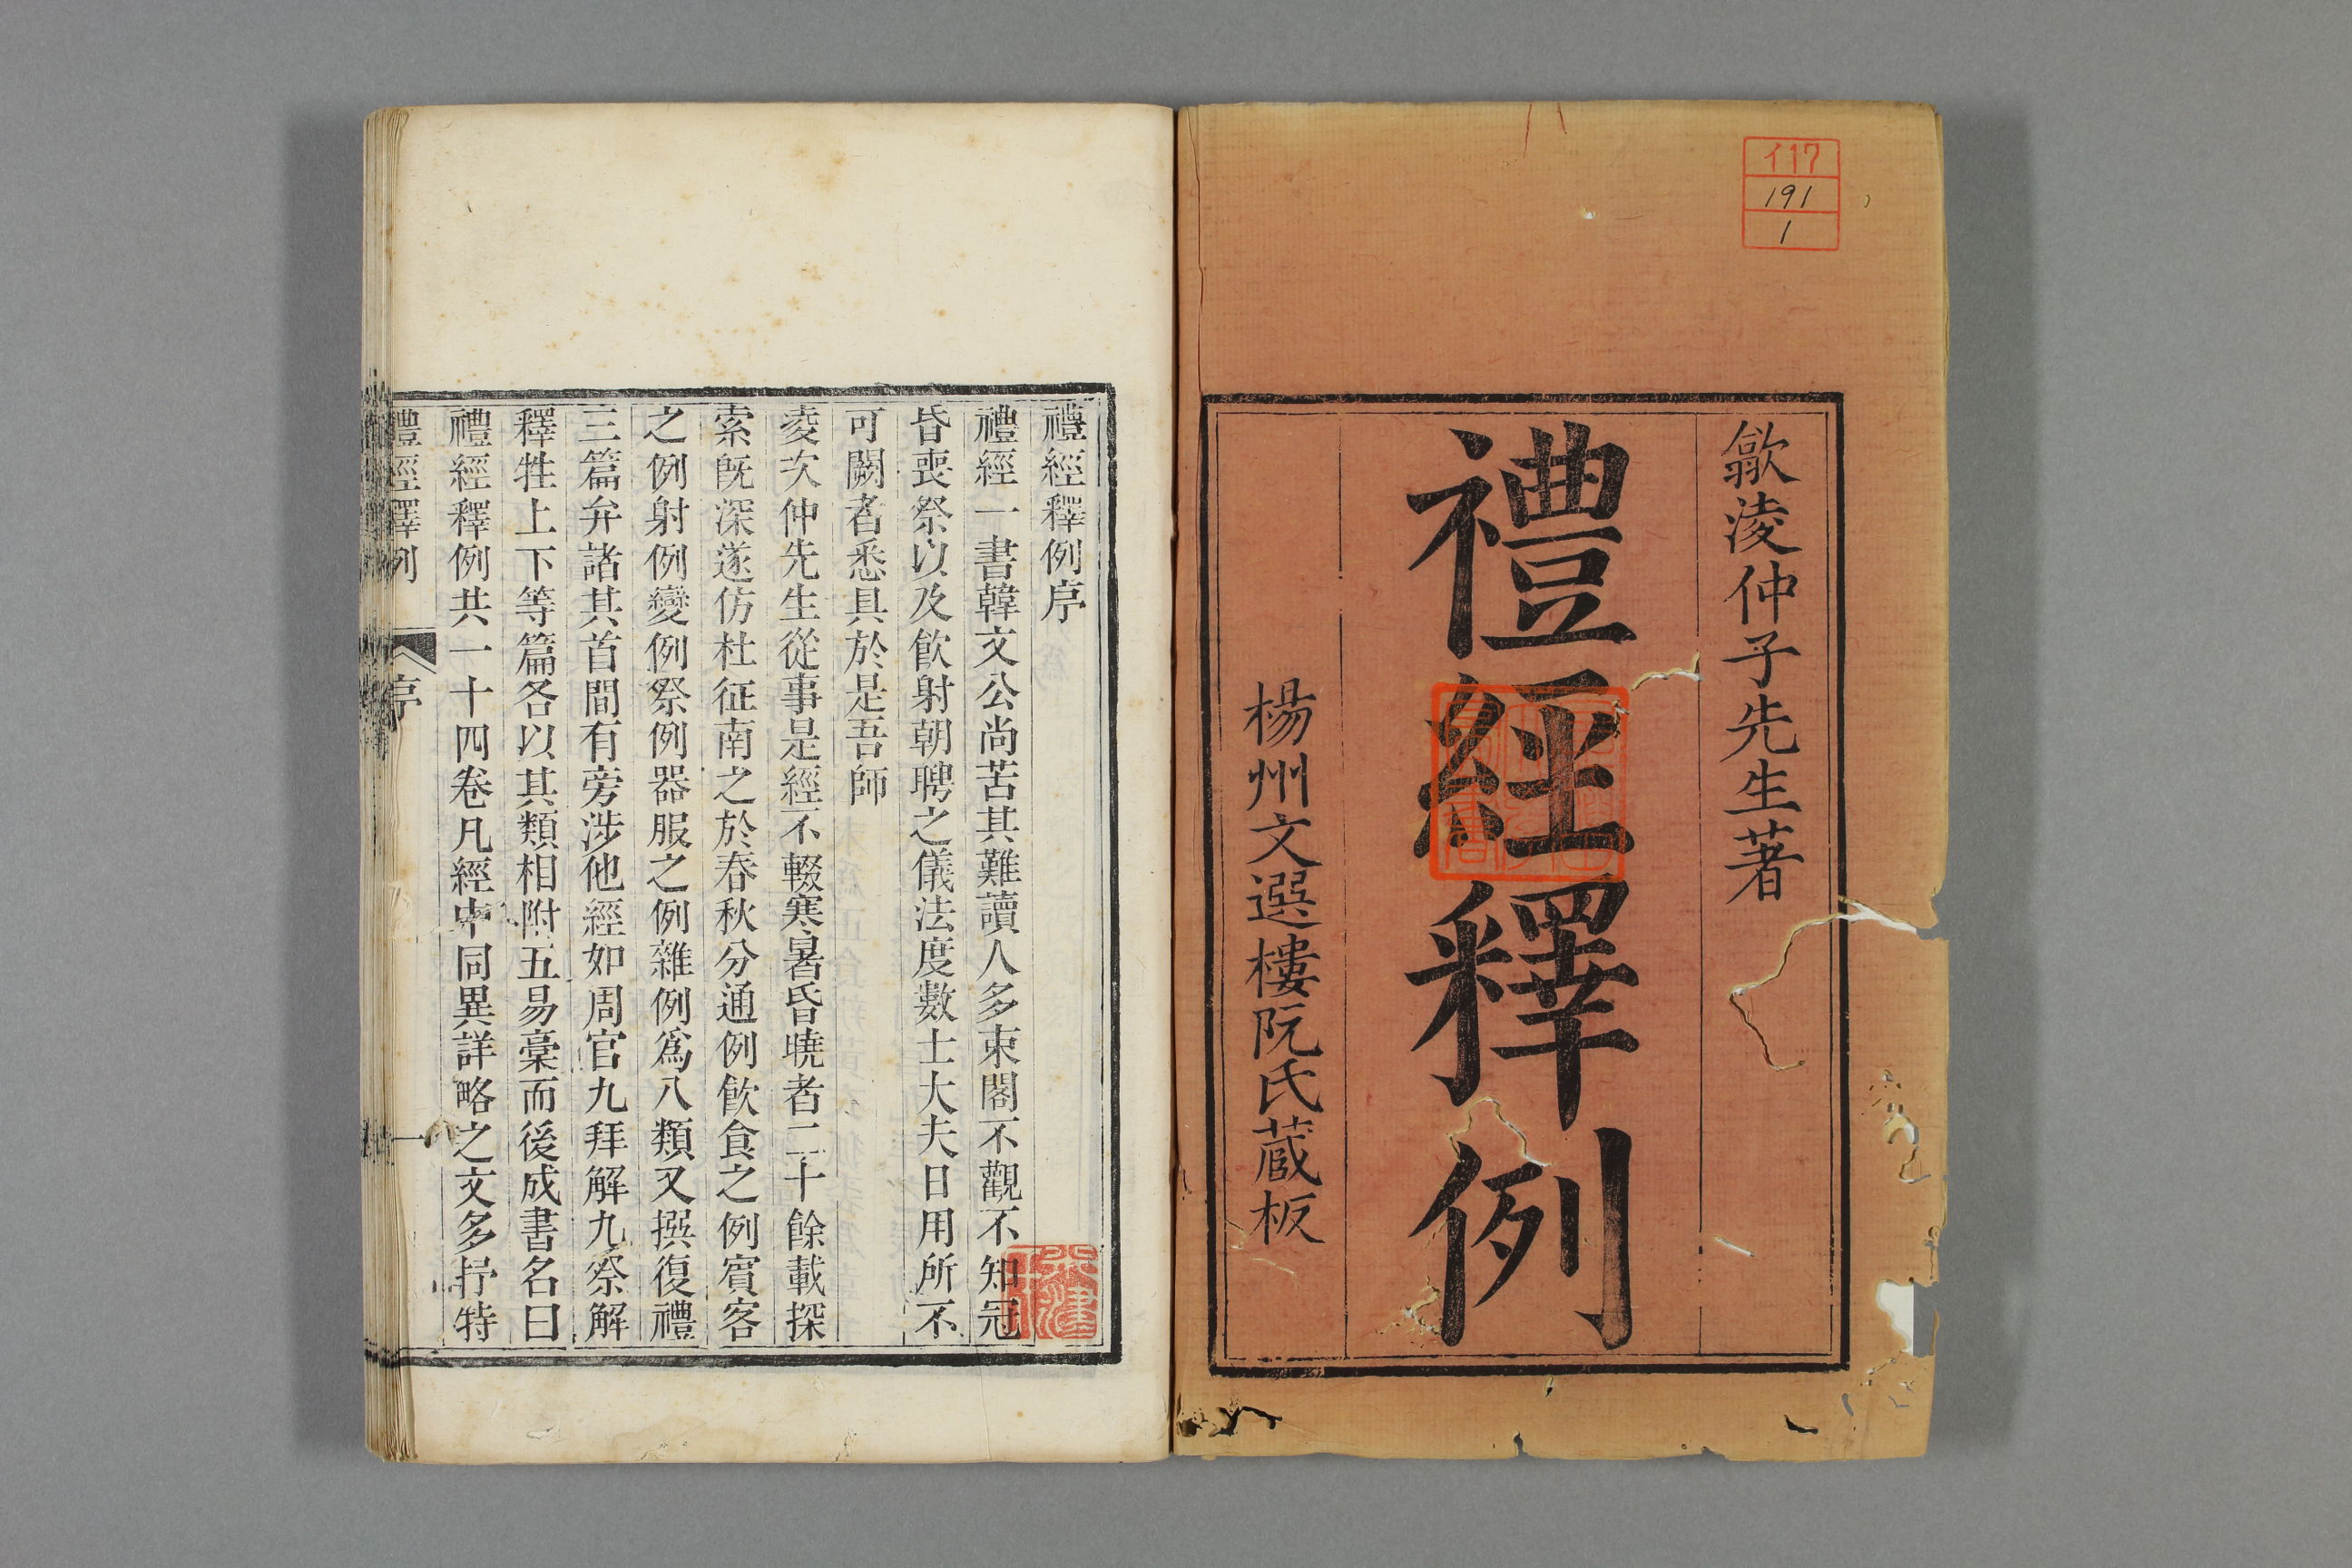 イ17
191
1
歙淩仲子先生著
禮經釋例
楊州文選樓阮氏蔵板
禮經釋例序
禮經一書韓文公尚苦其難讀人多束閣不觀不知冠
昏喪祭以及飮射朝聘之儀法度數士大夫日用所不
可闕者悉具於是吾師
凌次仲先生從事是經不輟寒暑昏曉者二十餘載探
索旣深遂仿杜征南之於春秋分通例飮食之例賓客
之例射例變例祭例器服之例雜例爲八類又撰復禮
三篇弁諸其首間有旁涉他經如周官九拜解九祭解
釋牲上下等篇各以其類相附五易稾而後成書名曰
禮經釋例共一十四卷凡經中同異詳略之文多抒特
禮經釋例
序
一